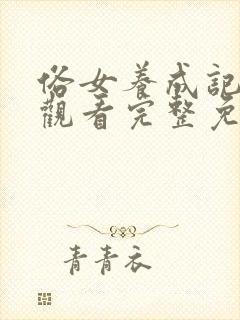 俗女養成記
觀看完整免
青青衣